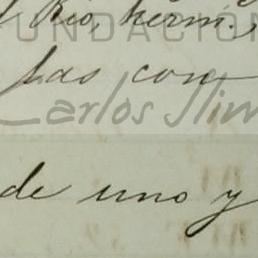 el Rio, herm.
FUNDACIÓN
las con
Carlos Slim
de uno y